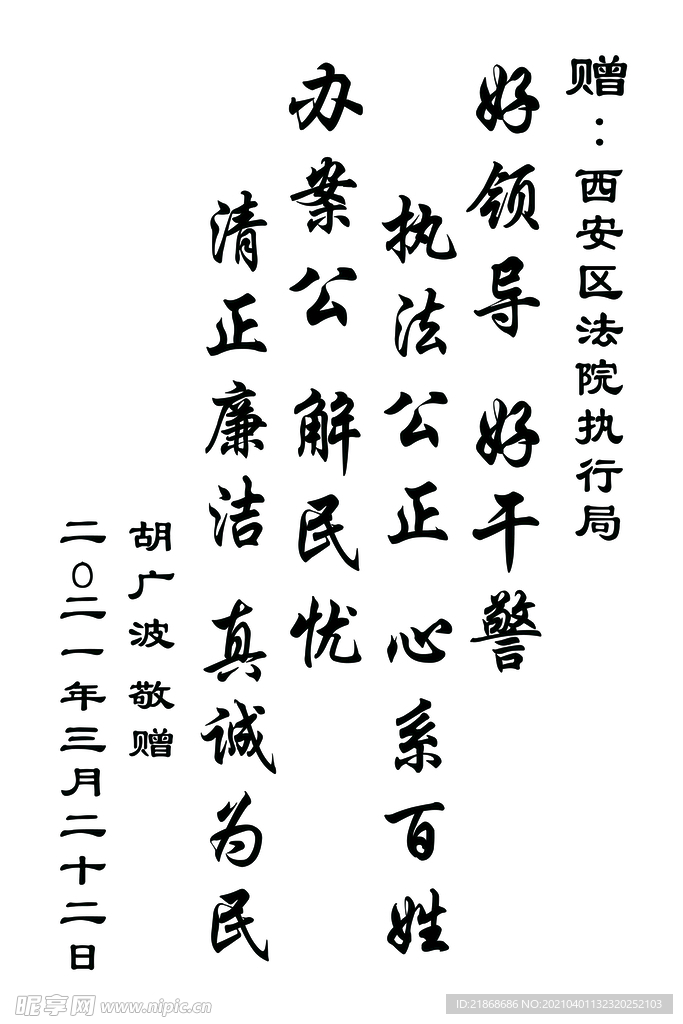 赠：西安区法院执行局
好领导 好干警
执法公正 心系百姓
办案公 解民忧
清正廉洁 真诚为民
胡广波敬赠
二〇二一年三月二十二日
昵享网 www.nipic.cn
ID:21868686 NO:20210401132320252103